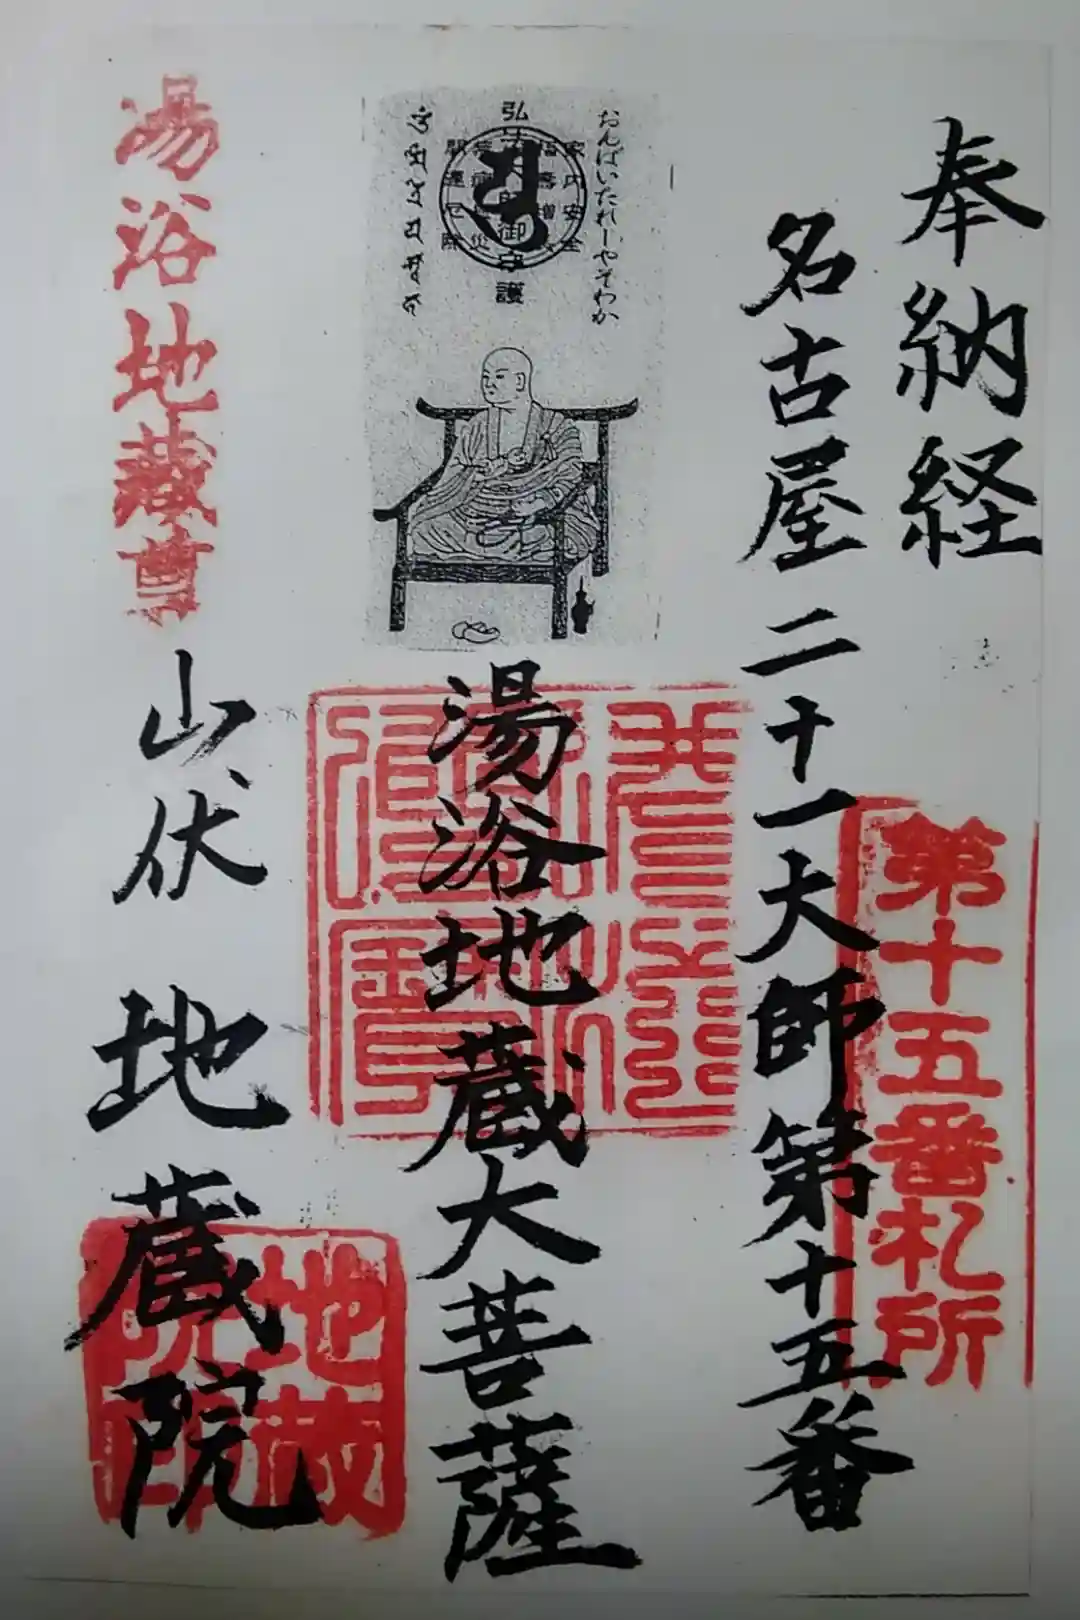 奉納経
第十五番札所
名古屋二十一大師第十五番
おんばいたれーやそわか
家内安全
弘法大師御守護
湯浴地蔵大菩薩
湯浴地蔵尊
山伏 地蔵院
地蔵院